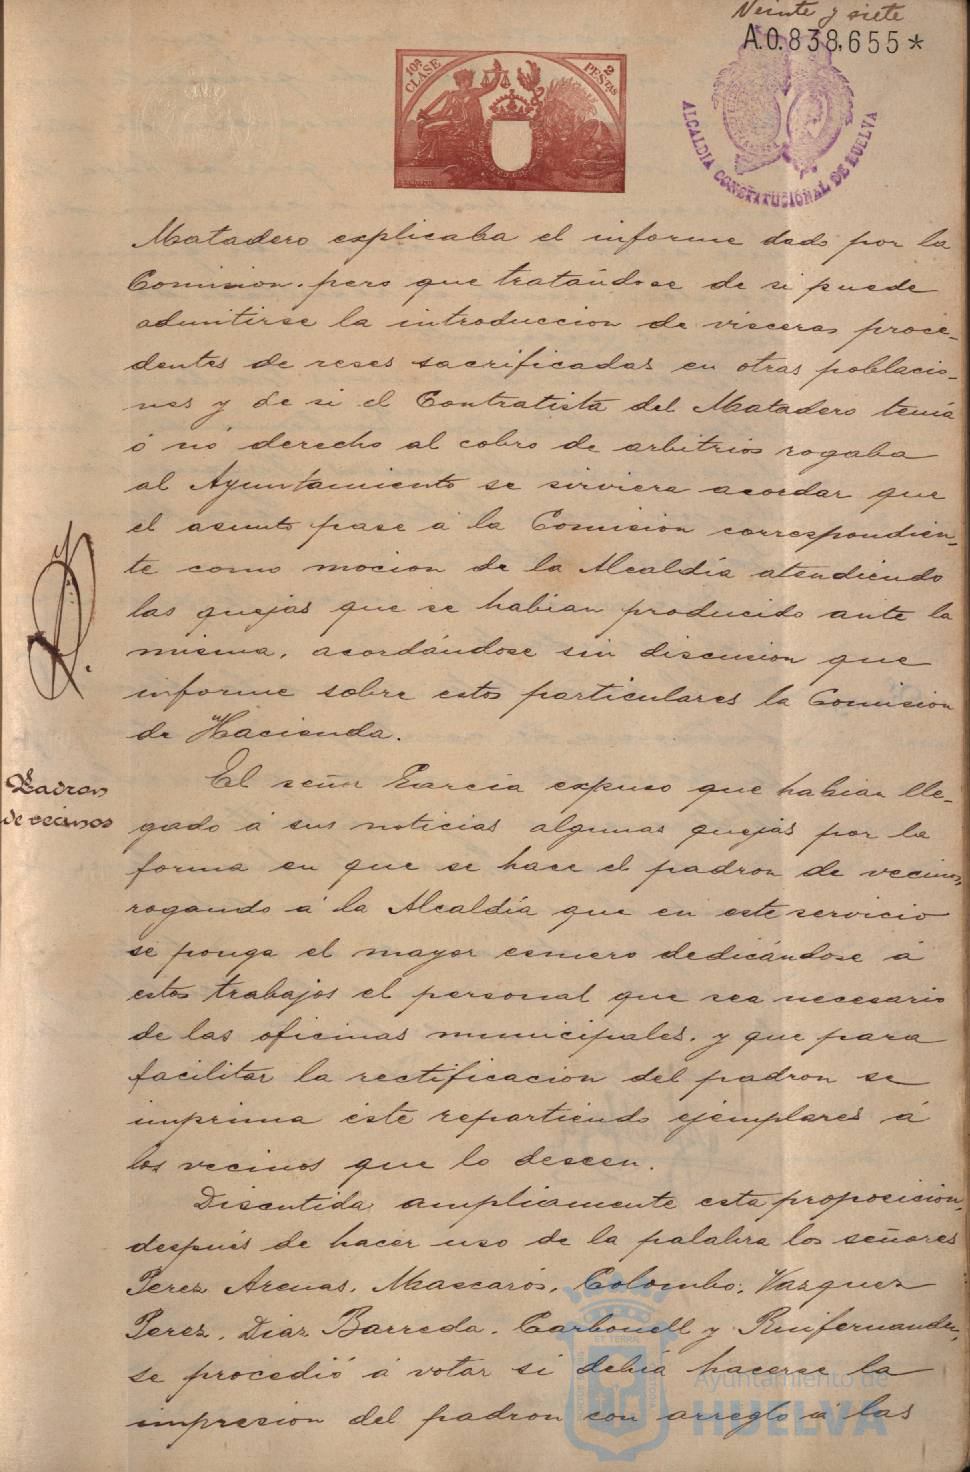 Veinte y siete
A.0.838,655*
10ª CLASE
2 PESETAS
ALCALDIA CONSTITUCIONAL DE HUELVA
Matadero explicaba el informe dado por la
Comision. pero que tratándose de si puede
admitirse la introduccion de visceras proce-
dentes de reses sacrificadas en otras poblacio-
nes y de si el Contratista del Matadero tenia
ó nó derecho al cobro de arbitrios rogaba
al Ayuntamiento se sirviera acordar que
el asunto pase á la Comision correspondien-
te como mocion de la Alcaldía atendiendo
las quejas que se habian producido ante la
misma, acordándose sin discusion que
informe sobre estos particulares la Comision
de Hacienda.
Padron
de vecinos
El señor Garcia expuso que habian lle-
gado á sus noticias algunas quejas por la
forma en que se hace el padron de vecinos,
rogando á la Alcaldía que en este servicio
se ponga el mayor esmero dedicándose á
estos trabajos el personal que sea necesario
de las oficinas municipales, y que para
facilitar la rectificacion del padron se
imprima éste repartiendo ejemplares á
los vecinos que lo deseen.
Discutida ampliamente esta proposicion,
después de hacer uso de la palabra los señores
Perez Arenas, Mascarós, Colombo, Vazquez
Perez, Diaz Barreda, Carbonell y Ruifernandez,
se procedió á votar si debia hacerse la
impresion del padron con arreglo á las
Ayuntamiento de
HUELVA